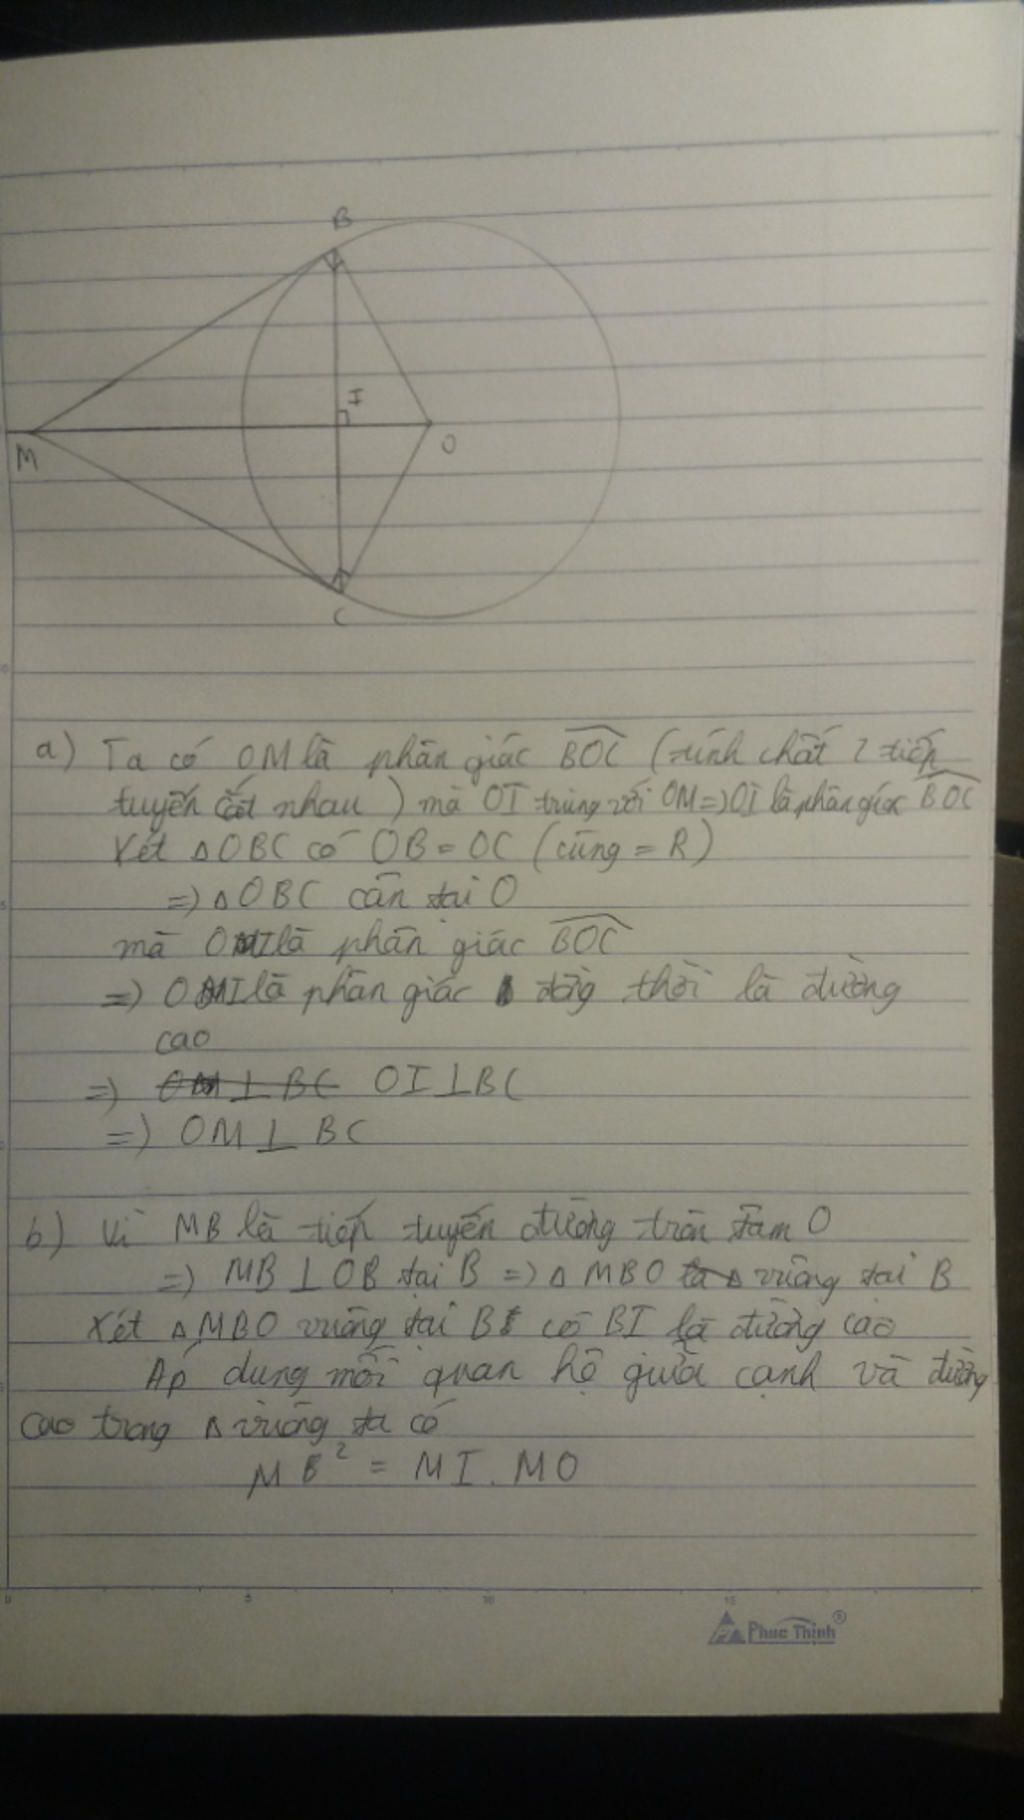 B
I
M
O
C
a) Ta có OM là phân giác BOC (tính chất 2 tiếp
tuyến cắt nhau) mà OI trùng với OM => OI là phân giác BOC
Xét ΔOBC có OB = OC (cùng = R)
=> ΔOBC cân tại O
mà OI là phân giác BOC
=> OI là phân giác đồng thời là đường
cao
=> OM ⊥ BC OI ⊥ BC
=> OM ⊥ BC
b) Vì MB là tiếp tuyến đường tròn tâm O
=> MB ⊥ OB tại B => Δ MBO là Δ vuông tại B
Xét ΔMBO vuông tại B có BI là đường cao
Áp dụng mối quan hệ giữa cạnh và đường
cao trong Δ vuông ta có
MB² = MI . MO
0 5 10 15
Phúc Thịnh®